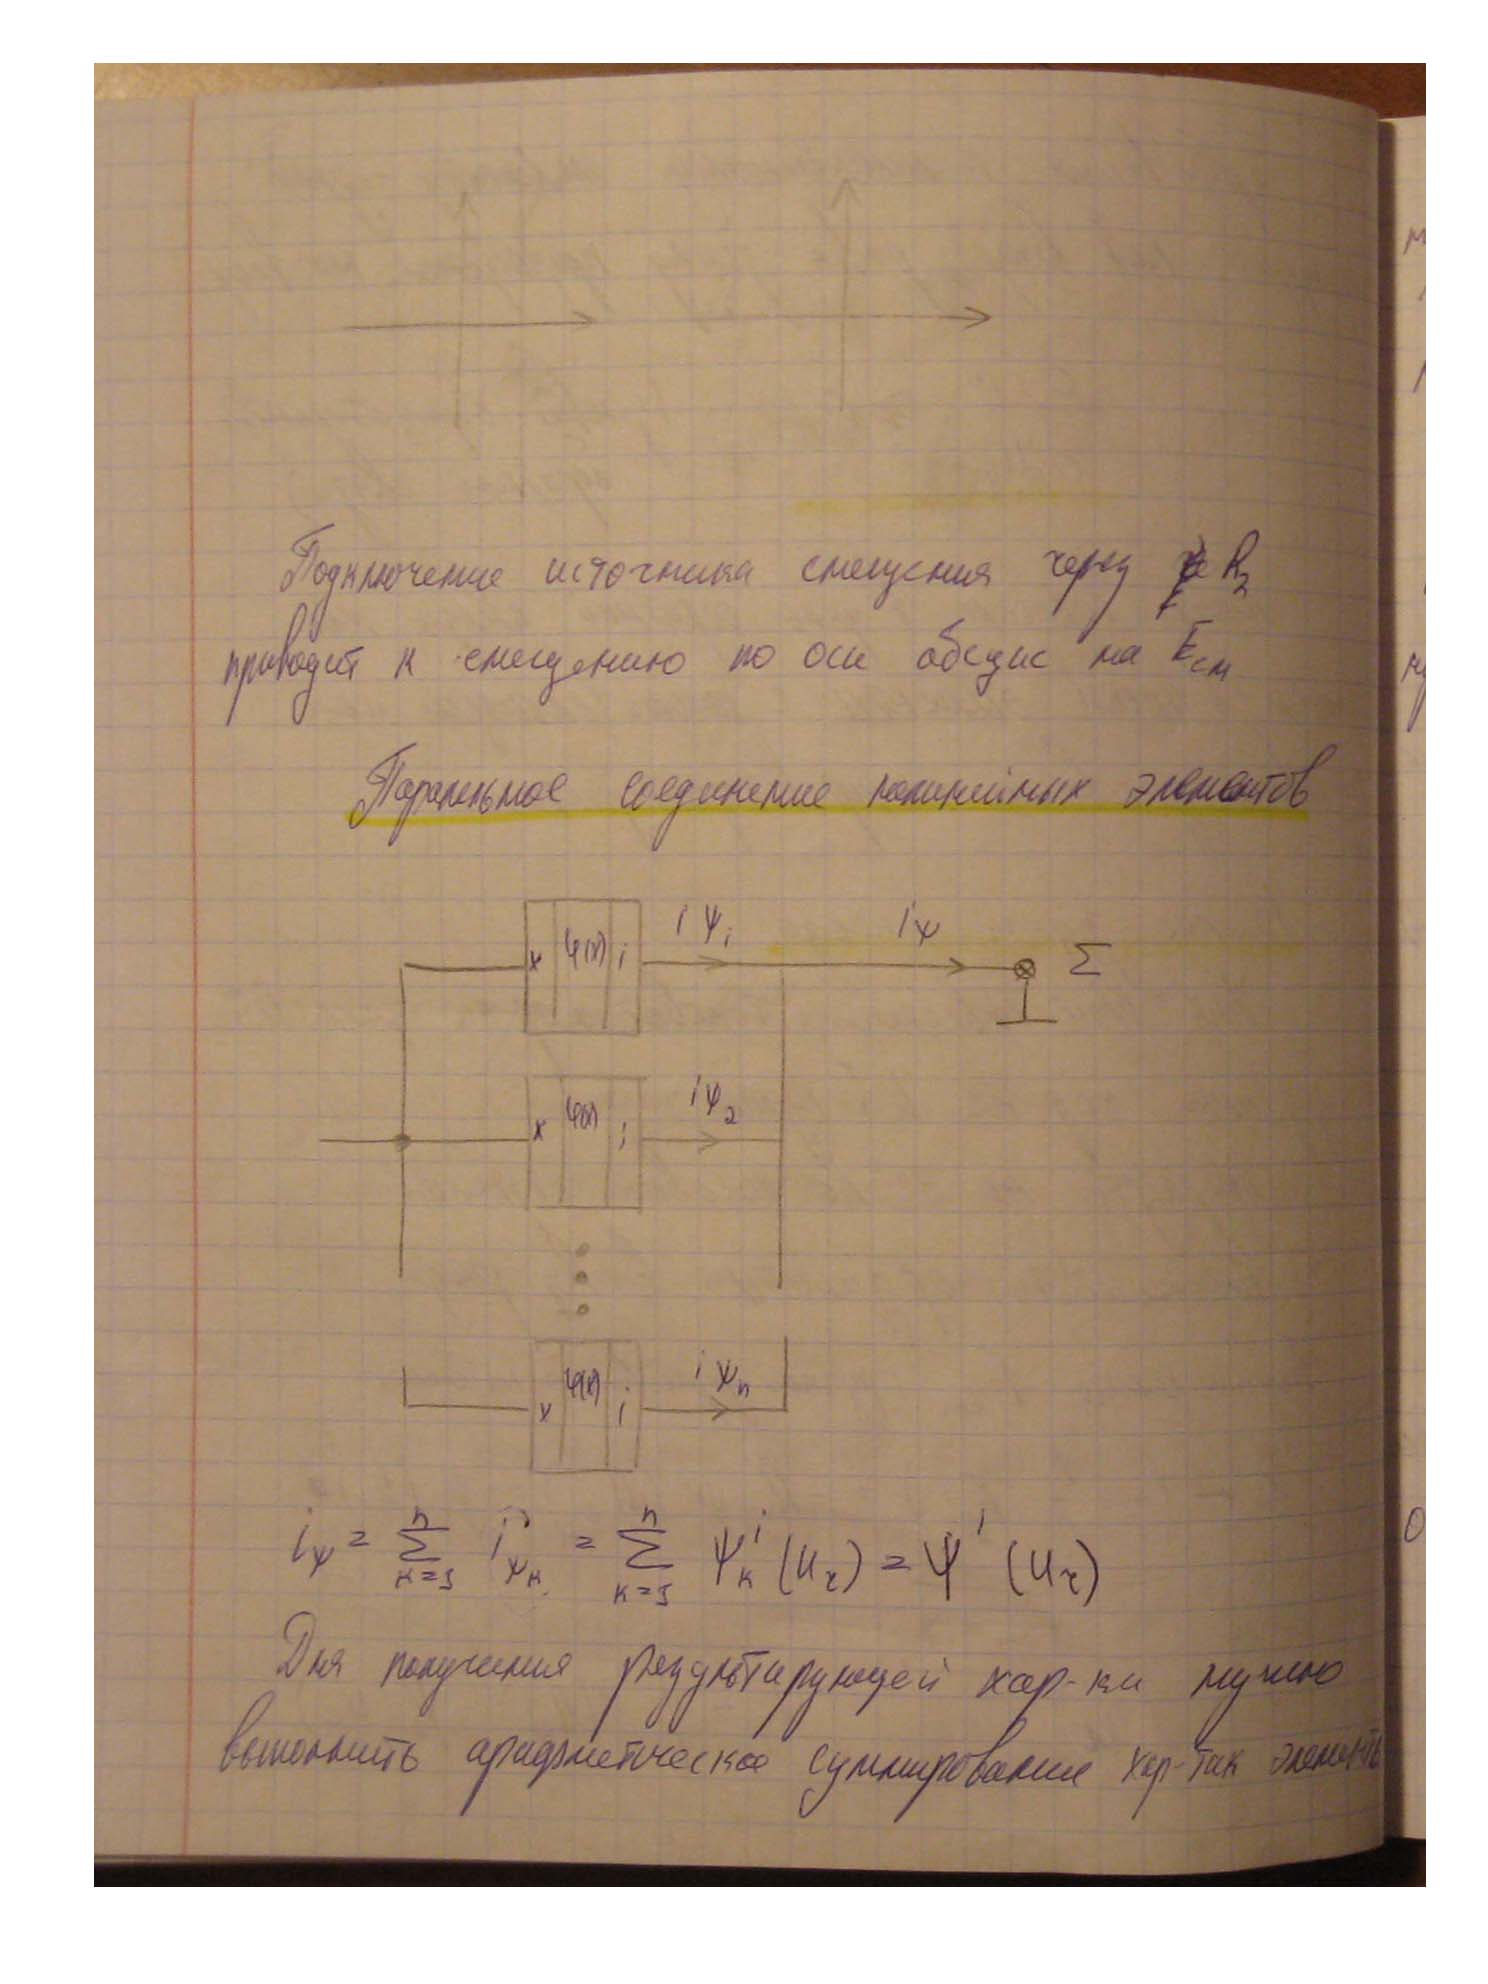 Подключение источника смещения через R₂
приводит к смещению по оси абсцис на Eсм
Паралельное соединение нелинейных элементов
x φ(x) i iψ₁ iψ Σ
x φ(x) i iψ₂
x φ(x) i iψₙ
iψ = Σ(k=1..n) iψₖ = Σ(k=1..n) ψₖⁱ(u_τ) = ψⁱ(u_τ)
Для получения результирующей хар-ки нужно
выполнить арифметическое суммирование хар-тик элементъ